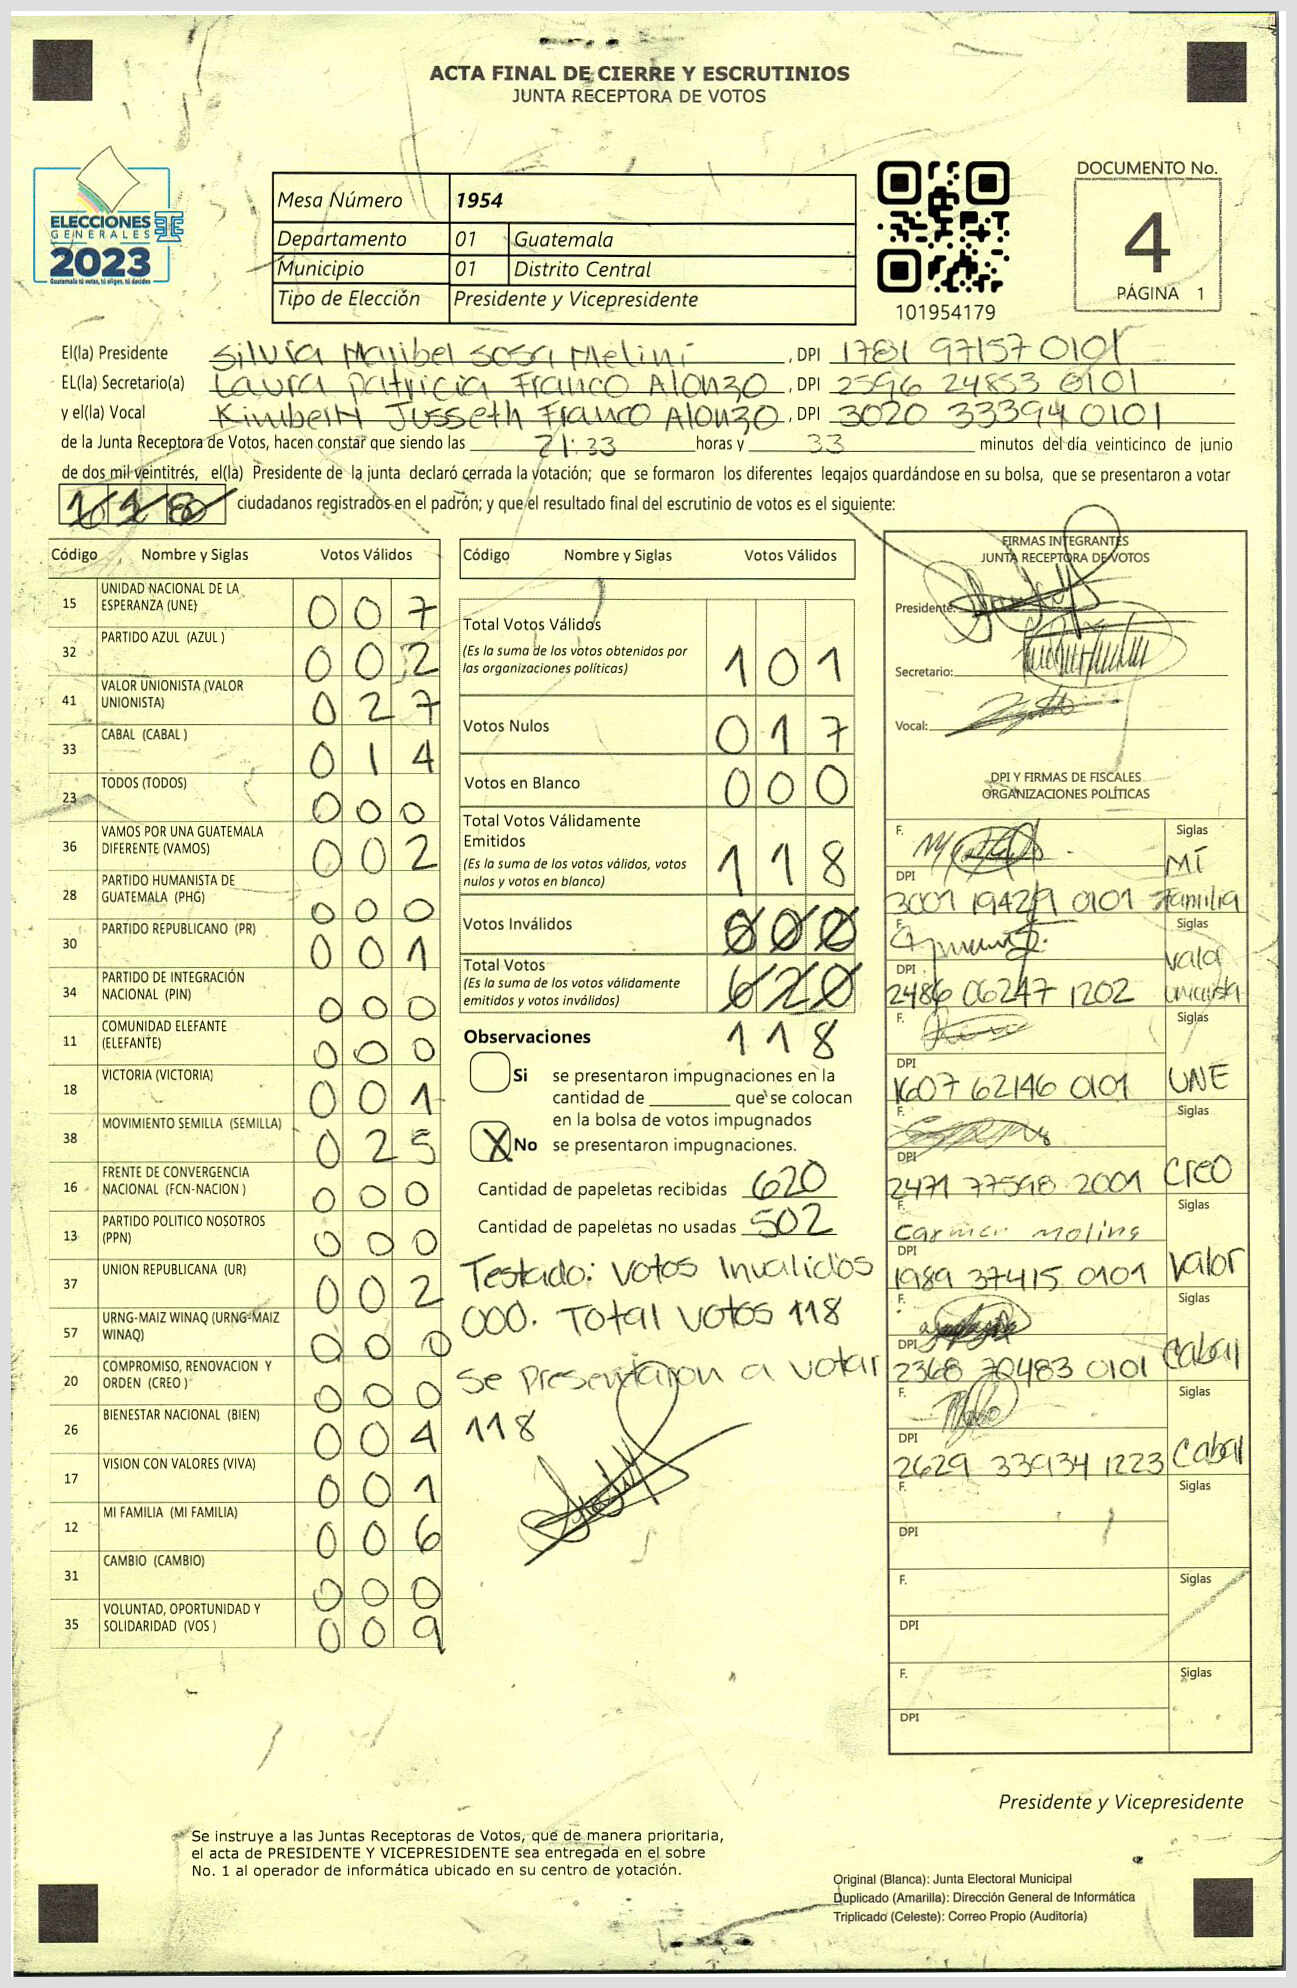 ACTA FINAL DE CIERRE Y ESCRUTINIOS
JUNTA RECEPTORA DE VOTOS
ELECCIONES
GENERALES
2023
Guatemala tú votas, tú eliges, tú decides
Mesa Número 1954
Departamento 01 Guatemala
Municipio 01 Distrito Central
Tipo de Elección Presidente y Vicepresidente
101954179
DOCUMENTO No.
4
PÁGINA 1
El(la) Presidente Silvia Maribel Sosa Melini, DPI 1781 97157 0101
EL(la) Secretario(a) Laura Patricia Franco Alonzo, DPI 2596 24853 0101
y el(la) Vocal Kimberli Jusseth Franco Alonzo, DPI 3020 33394 0101
de la Junta Receptora de Votos, hacen constar que siendo las 21:33 horas y 33 minutos del día veinticinco de junio
de dos mil veintitrés, el(la) Presidente de la junta declaró cerrada la votación; que se formaron los diferentes legajos guardándose en su bolsa, que se presentaron a votar
118 ciudadanos registrados en el padrón; y que el resultado final del escrutinio de votos es el siguiente:
Código Nombre y Siglas Votos Válidos
15 UNIDAD NACIONAL DE LA ESPERANZA (UNE) 007
32 PARTIDO AZUL (AZUL ) 002
41 VALOR UNIONISTA (VALOR UNIONISTA) 027
33 CABAL (CABAL ) 014
23 TODOS (TODOS) 000
36 VAMOS POR UNA GUATEMALA DIFERENTE (VAMOS) 002
28 PARTIDO HUMANISTA DE GUATEMALA (PHG) 000
30 PARTIDO REPUBLICANO (PR) 001
34 PARTIDO DE INTEGRACIÓN NACIONAL (PIN) 000
11 COMUNIDAD ELEFANTE (ELEFANTE) 000
18 VICTORIA (VICTORIA) 001
38 MOVIMIENTO SEMILLA (SEMILLA) 025
16 FRENTE DE CONVERGENCIA NACIONAL (FCN-NACION ) 000
13 PARTIDO POLITICO NOSOTROS (PPN) 000
37 UNION REPUBLICANA (UR) 002
57 URNG-MAIZ WINAQ (URNG-MAIZ WINAQ) 000
20 COMPROMISO, RENOVACION Y ORDEN (CREO ) 000
26 BIENESTAR NACIONAL (BIEN) 004
17 VISION CON VALORES (VIVA) 001
12 MI FAMILIA (MI FAMILIA) 006
31 CAMBIO (CAMBIO) 000
35 VOLUNTAD, OPORTUNIDAD Y SOLIDARIDAD (VOS ) 009
Código Nombre y Siglas Votos Válidos
Total Votos Válidos
(Es la suma de los votos obtenidos por
las organizaciones políticas) 101
Votos Nulos 017
Votos en Blanco 000
Total Votos Válidamente
Emitidos
(Es la suma de los votos válidos, votos
nulos y votos en blanco) 118
Votos Inválidos 000
Total Votos
(Es la suma de los votos válidamente
emitidos y votos inválidos) 620
118
Observaciones
Si se presentaron impugnaciones en la
cantidad de ________ que se colocan
en la bolsa de votos impugnados
X No se presentaron impugnaciones.
Cantidad de papeletas recibidas 620
Cantidad de papeletas no usadas 502
Testado: votos Invalidos
000. Total votos 118
Se presentaron a votar
118
FIRMAS INTEGRANTES
JUNTA RECEPTORA DE VOTOS
Presidente:
Secretario:
Vocal:
DPI Y FIRMAS DE FISCALES
ORGANIZACIONES POLÍTICAS
F. Siglas
MI Familia
DPI
3001 19429 0101
F. Siglas
Valor Unionista
DPI
2486 06247 1202
F. Siglas
DPI
1607 62146 0101 UNE
F. Siglas
DPI
2471 77598 2001 CREO
F. Carmen Molina Siglas
DPI
1989 37415 0101 Valor
F. Siglas
DPI
2368 70483 0101 Cabal
F. Siglas
DPI
2629 33934 1223 Cabal
F. Siglas
DPI
F. Siglas
DPI
F. Siglas
DPI
Presidente y Vicepresidente
Se instruye a las Juntas Receptoras de Votos, que de manera prioritaria,
el acta de PRESIDENTE Y VICEPRESIDENTE sea entregada en el sobre
No. 1 al operador de informática ubicado en su centro de votación.
Original (Blanca): Junta Electoral Municipal
Duplicado (Amarilla): Dirección General de Informática
Triplicado (Celeste): Correo Propio (Auditoría)